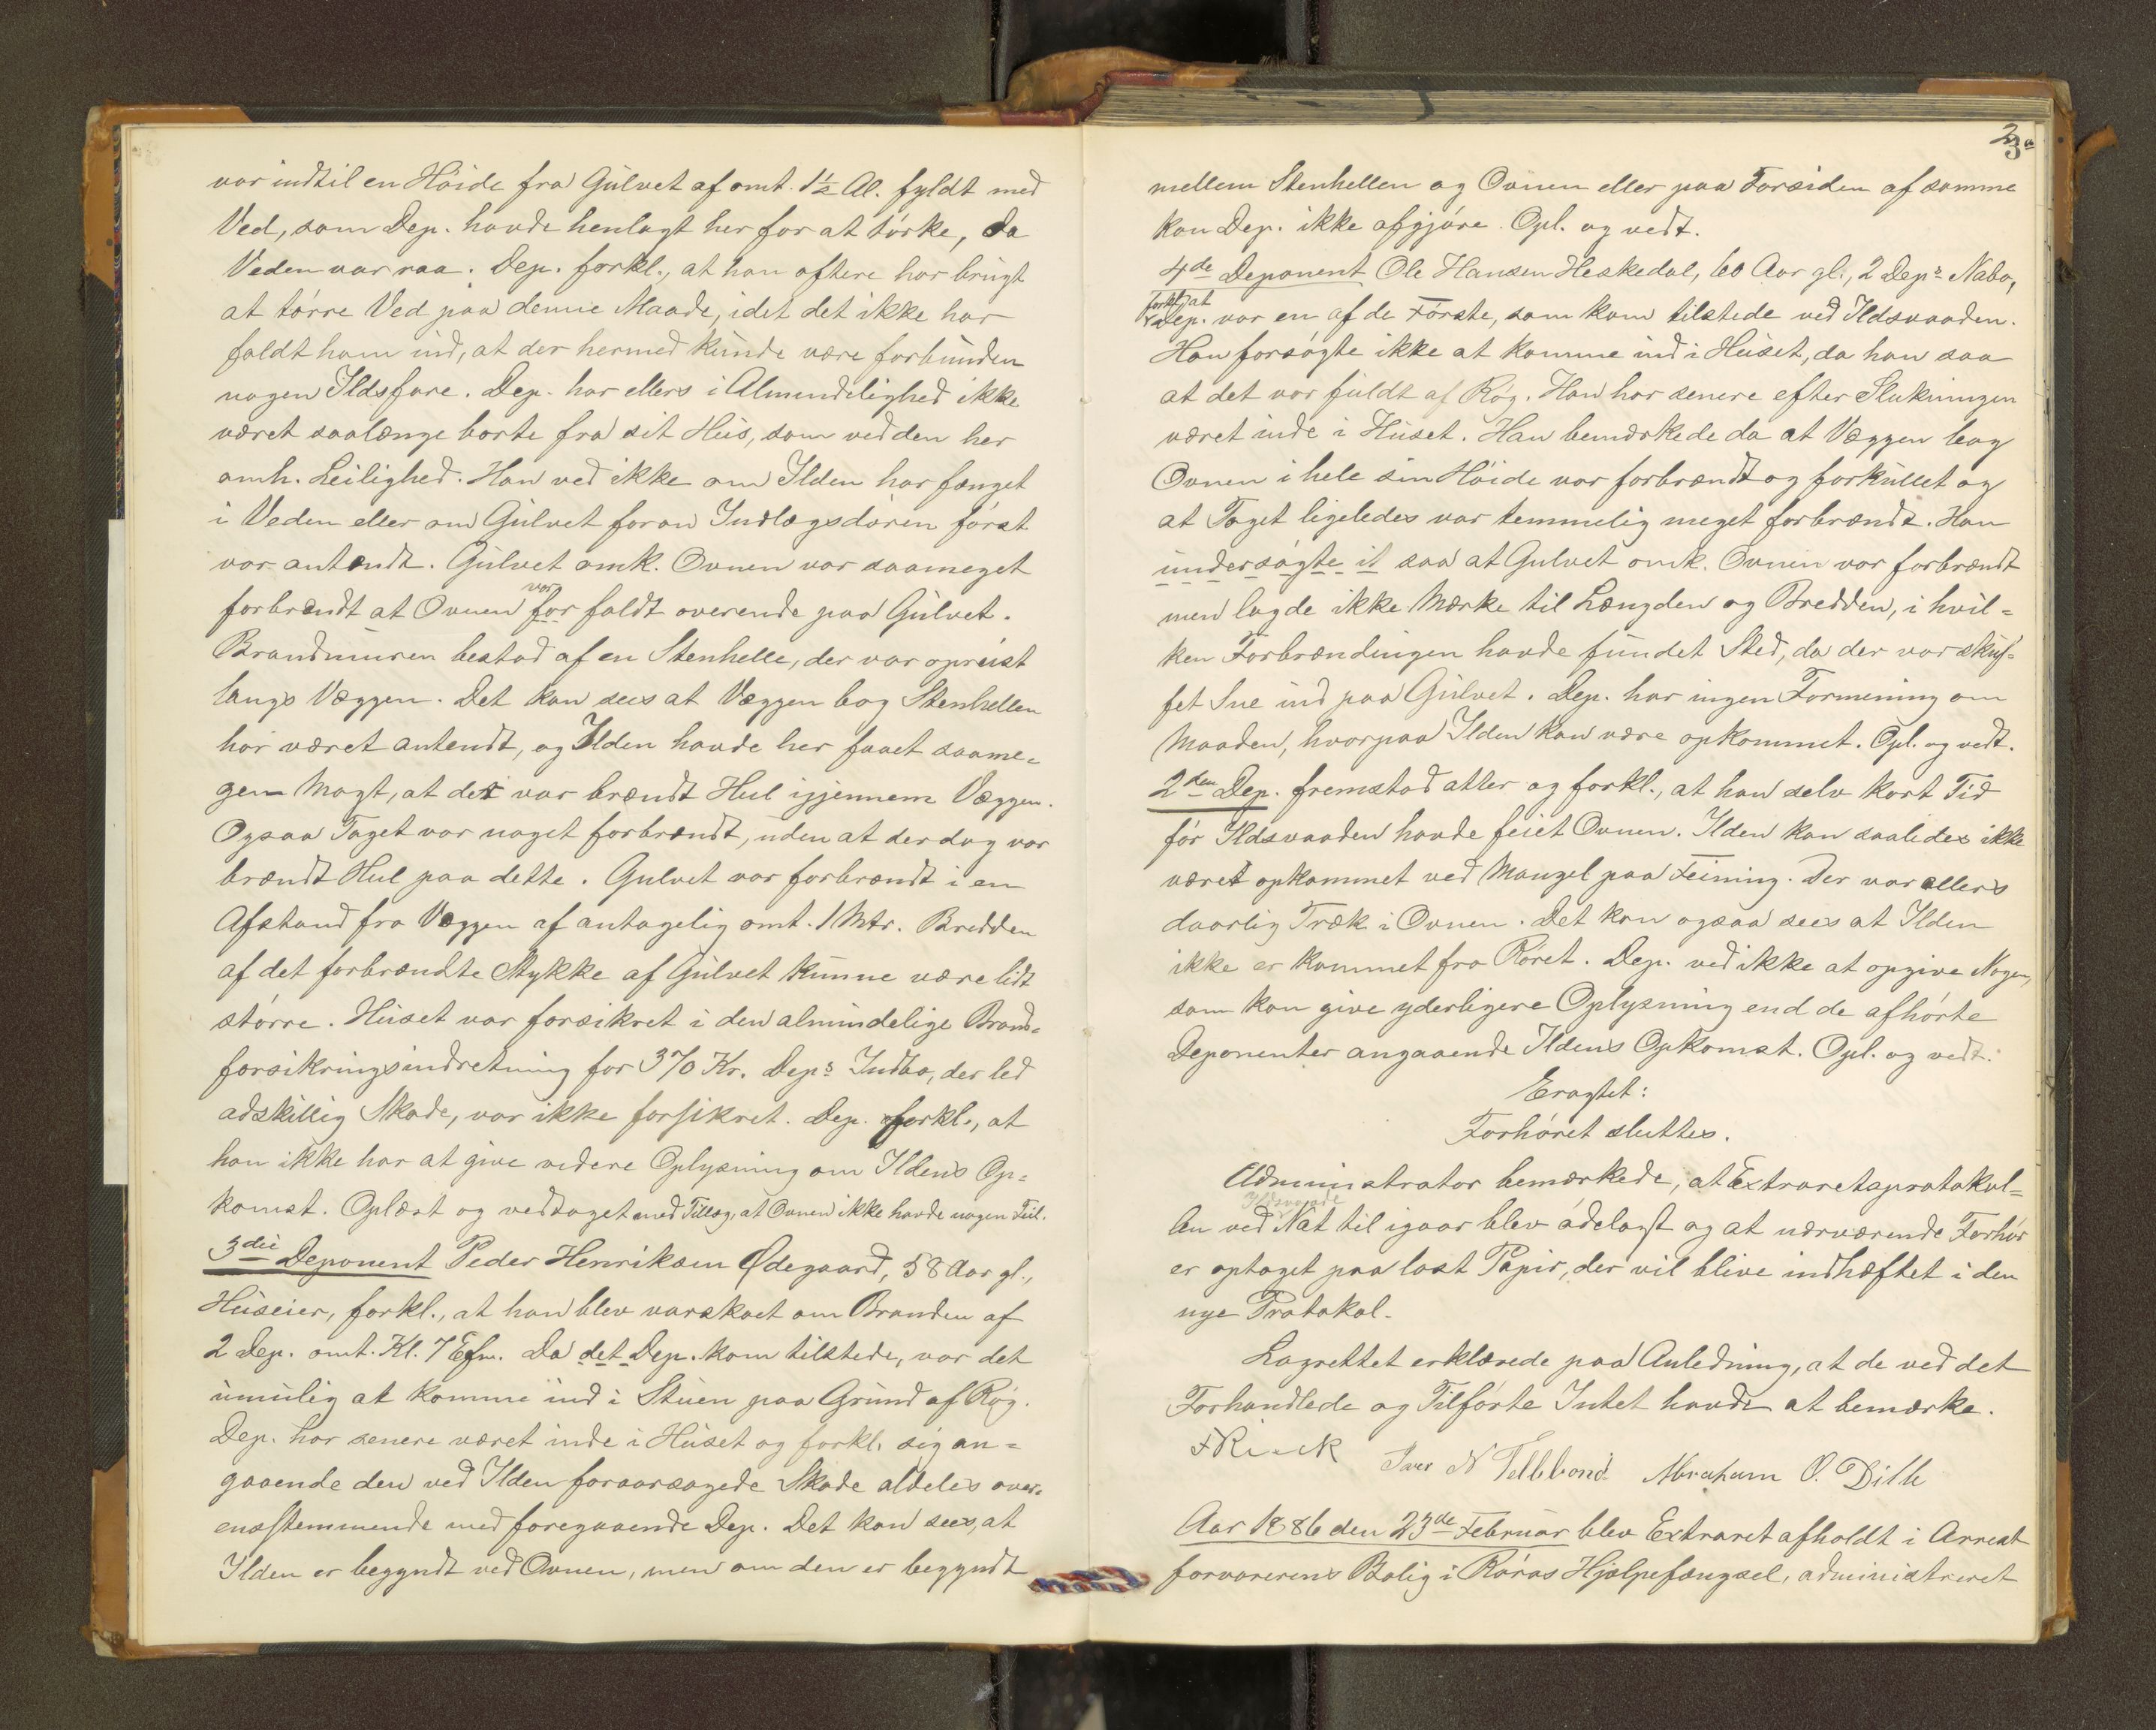 var indtil en Höide fra Gulvet af omt. 1½ Al. fyldt med
Ved, som Dep. havde henlagt her for at törke, da
Veden var raa. Dep. forkl., at han oftere har brugt
at törre Ved paa denne Maade, idet det ikke har
faldt ham ind, at der hermed kunde være forbunden
nogen Ildsfare. Dep. har ellers i Almindelighed ikke
været saalænge borte fra sit Hus, som ved den her
omh. Leilighed. Han ved ikke om Ilden har fænget
i Veden eller om Gulvet foran Indlægsdören först
var antændt. Gulvet omk. Ovnen var saameget
forbrændt at Ovnen var for faldt overende paa Gulvet.
Brandmuren bestod af en Stenhelle, der var opreist
langs Væggen. Det kan sees at Væggen bag Stenhellen
har været antendt, og Ilden havde her faaet saame-
gen Magt, at der var brændt Hul igjennem Væggen.
Ogsaa Taget var noget forbrændt, uden at der dog var
brændt Hul paa dette. Gulvet var forbrændt i en
Afstand fra Væggen af antagelig omt. 1 Mtr. Bredden
af det forbrændte Stykke af Gulvet kunne være lidt
större. Huset var forsikret i den almindelige Brand-
forsikringsindretning for 370 Kr. Deps Indbo, der led
adskillig Skade, var ikke forsikret. Dep. forkl., at
han ikke har at give videre Oplysning om Ildens Op-
komst. Oplæst og vedtaget med Tillæg, at Ovnen ikke havde nogen Feil.
3die Deponent Peder Henriksen Ødegaard, 58 Aar gl.,
Huseier, forkl., at han blev varskoet om Branden af
2 Dep. omt. Kl. 7 Efm. Da det Dep. kom tilstede, var det
umulig at komme ind i Stuen paa Grund af Røg.
Dep. har senere været inde i Huset og forkl. sig an-
gaaende den ved Ilden foraarsagede Skade aldeles over-
ensstemmende med foregaaende Dep. Det kan sees, at
Ilden er begyndt ved Ovnen, men om den er begyndt
3a
mellem Stenhellen og Ovnen eller paa Forsiden af samme
kan Dep. ikke afgjöre. Opl. og vedt.
4de Deponent Ole Hansen Heskedal, 60 Aar gl., 2 Deps Nabo,
forkl. at
Dep. var en af de Förste, som kom tilstede ved Ildsvaaden.
Han forsögte ikke at komme ind i Huset, da han saa
at det var fuldt af Røg. Han har senere efter Slukningen
været inde i Huset. Han bemærkede da at Væggen bag
Ovnen i hele sin Höide var forbrændt og forkullet og
at Taget ligeledes var temmelig meget forbrændt. Han
undersögte it saa at Gulvet omk. Ovnen var forbrændt
men lagde ikke Mærke til Længden og Bredden, i hvil-
ken Forbrændingen havde fundet Sted, da der var skuf-
fet Sne ind paa Gulvet. Dep. har ingen Formening om
Maaden, hvorpaa Ilden kan være opkommet. Opl. og vedt.
2den Dep. fremstod atter og forkl., at han selv kort Tid
för Ildsvaaden havde feiet Ovnen. Ilden kan saaledes ikke
været opkommet ved Mangel paa Feining. Der var ellers
daarlig Træk i Ovnen. Det kan ogsaa sees at Ilden
ikke er kommet fra Röret. Dep. ved ikke at opgive Nogen,
som kan give yderligere Oplysning end de afhörte
Deponenter angaaende Ildens Opkomst. Opl. og vedt.
Eragtet:
Forhöret sluttes.
Administrator bemærkede, at Extraretsprotokol-
Ildsvaade
len ved Nat til igaar blev ödelagt og at nærværende Forhör
er optaget paa löst Papir, der vil blive indhæftet i den
nye Protokol.
Lagrettet erklærede paa Anledning, at de ved det
Forhandlede og Tilförte Intet havde at bemærke.
Iver N Abraham O. Dille
Aar 1886 den 23de Februar blev Extraret afholdt i Arrest
forvarerens Bolig i Röros Hjælpefængsel, administreret